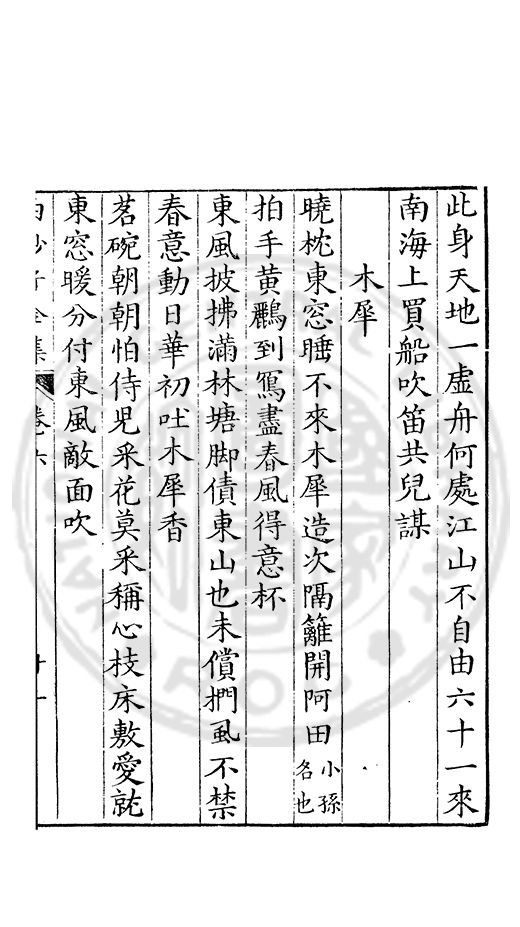 此身天地一虛舟何處江山不自由六十一來
南海上買船吹笛共兒謀
木犀
曉枕東窓睡不來木犀造次隔籬開阿田小孫各也
拍手黄鸝到寫盡春風得意杯
東風披拂滿林塘脚債東山也未償捫虱不禁
春意動日華初吐木犀香
茗碗朝朝怕侍兒采花莫采稱心枝床敷愛就
東窓暖分付東風敵面吹
白沙子全集 卷六 十一